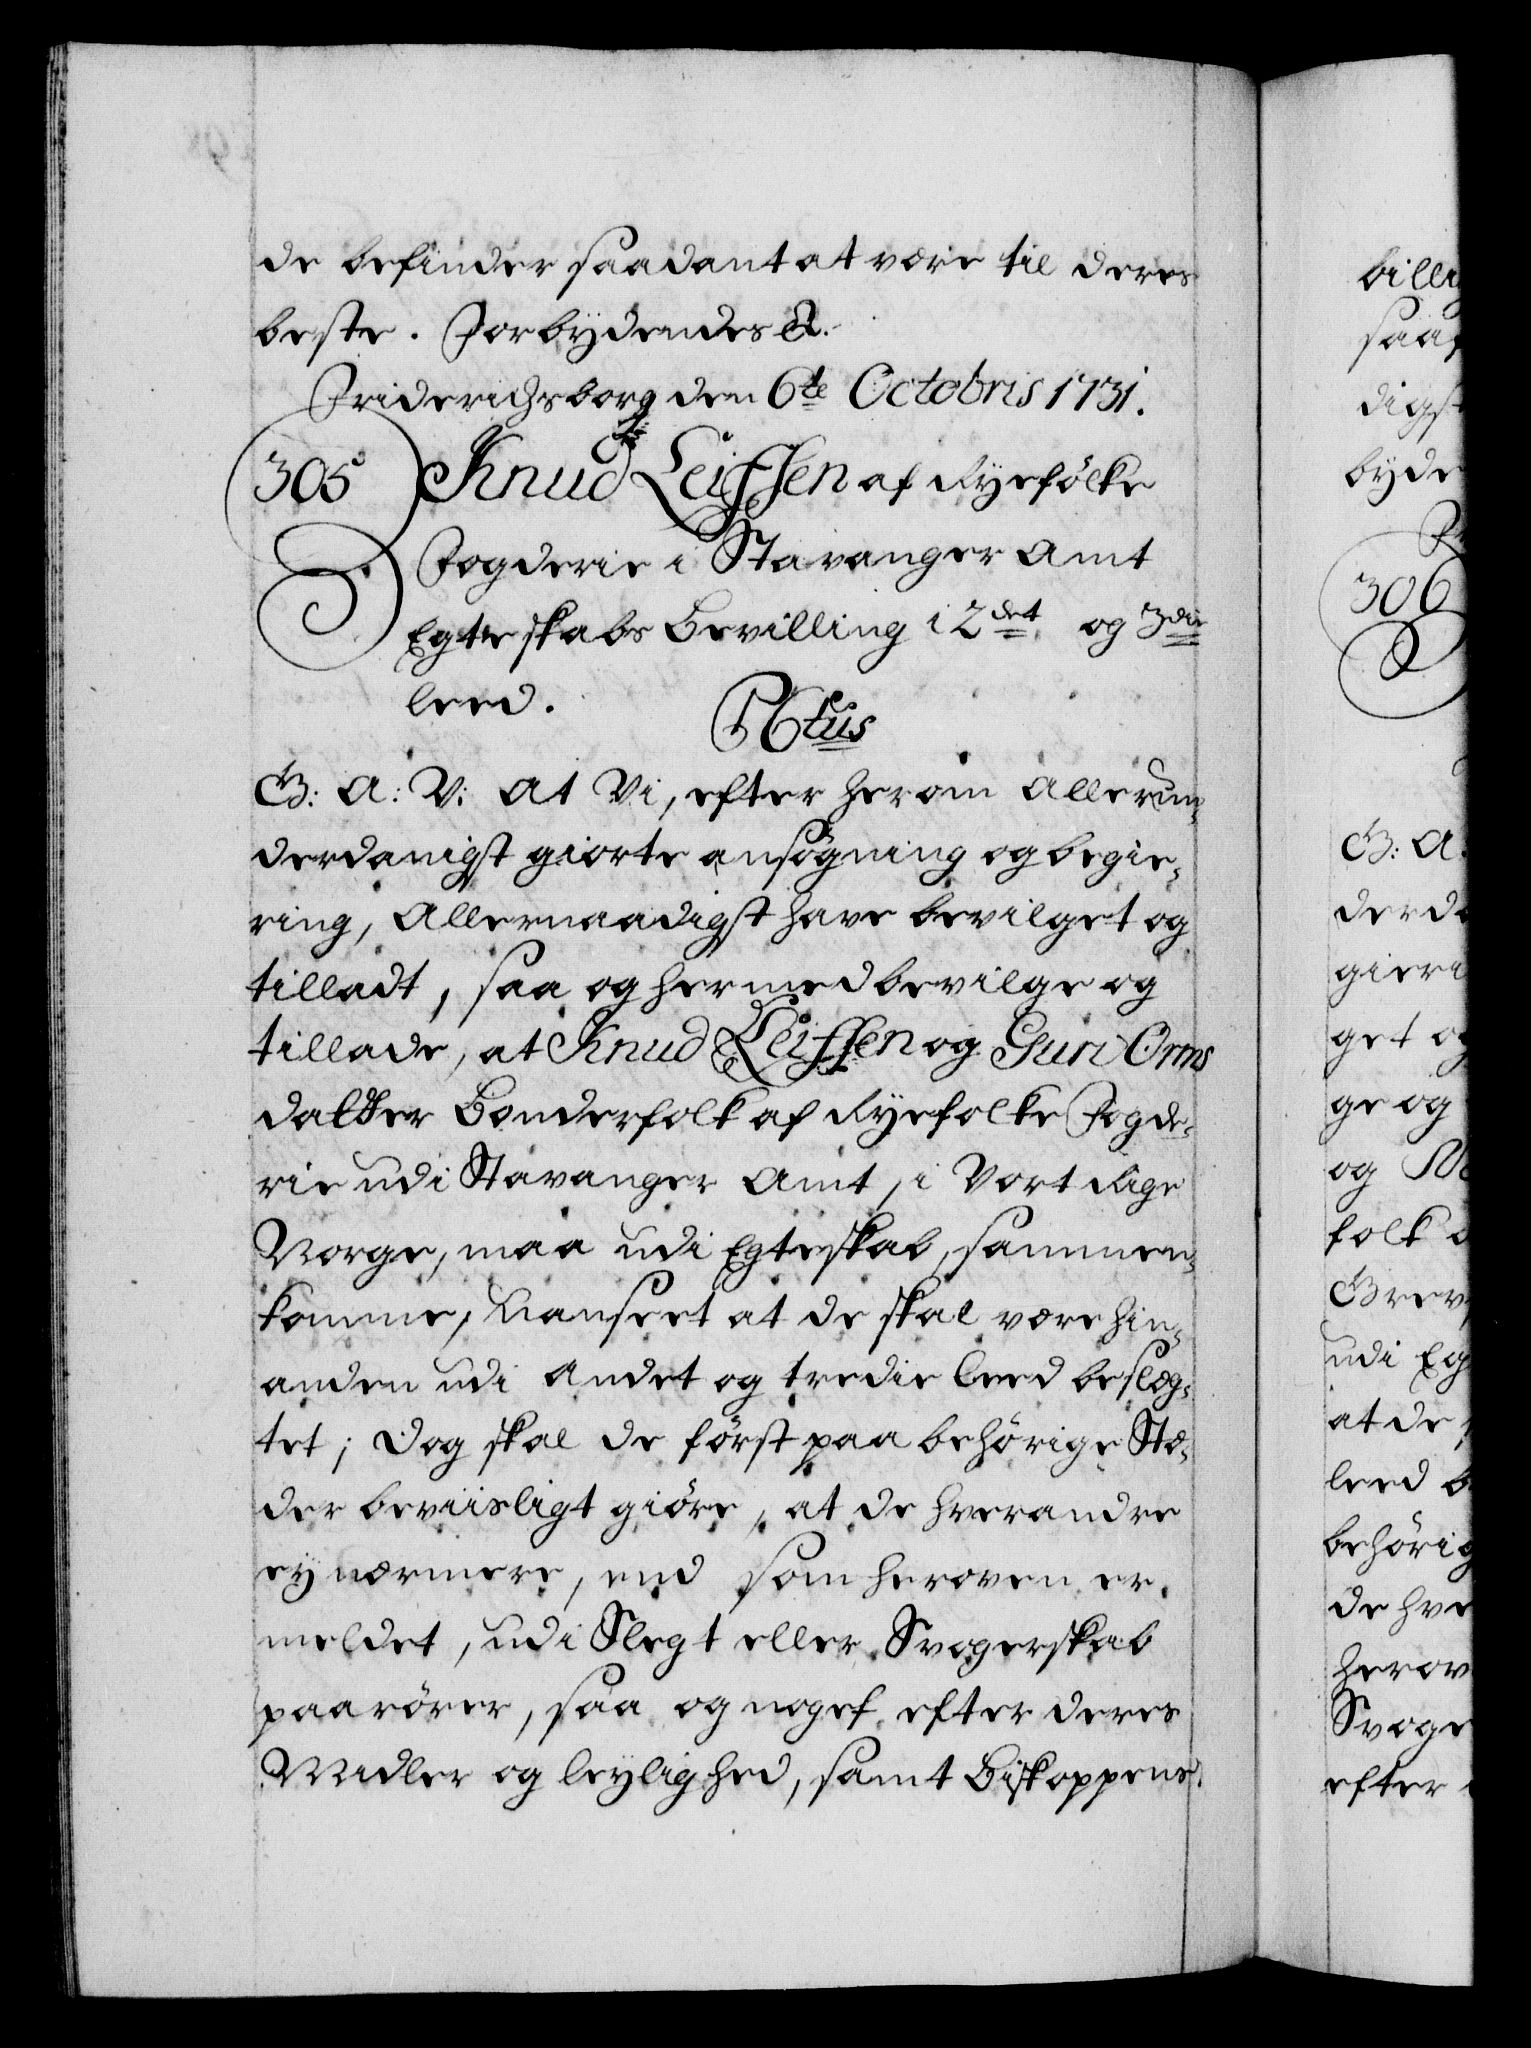 de befinder saadant at være til deres
beste. Forbydendes &.
Friderichsborg den 6te Octobris 1731.
305 Knud Leiffsen af Ryefolke
Fogderie i Stavanger Amt
Egteskabs Bevilling i 2det og 3die
leed.
C6tus
G: A: V: At Vi, efter herom allerun-
derdanigst giorte ansøgning og begie-
ring, Allernaadigst have bevilget og
tilladt, saa og hermed bevilge og
tillade, at Knud Leiffsen og Guri Orms
datter Bønderfolk af Ryefolke Fogde-
rie udi Stavanger Amt, i Vort Rige
Norge, maa udi Egteskab, sammen-
komme, Uanseet at de skal være hin-
anden udi andet og tredie leed beslæg-
tet; Dog skal de først paa behørige Stæ-
der beviisligt giøre, at de hverandre
ey nærmere, end som heroven er
meldet, udi Slegt eller Svogerskab
paarører, saa og noget efter deres
Midler og leylighed, samt Biskoppens
billi
saa
digst
byde
Fr
306
G: A.
derda
gieri
get og
ge og
og
folk
Grev
udi Eg
at de
leed b
behørig
de hve
herov
Svoge
efter